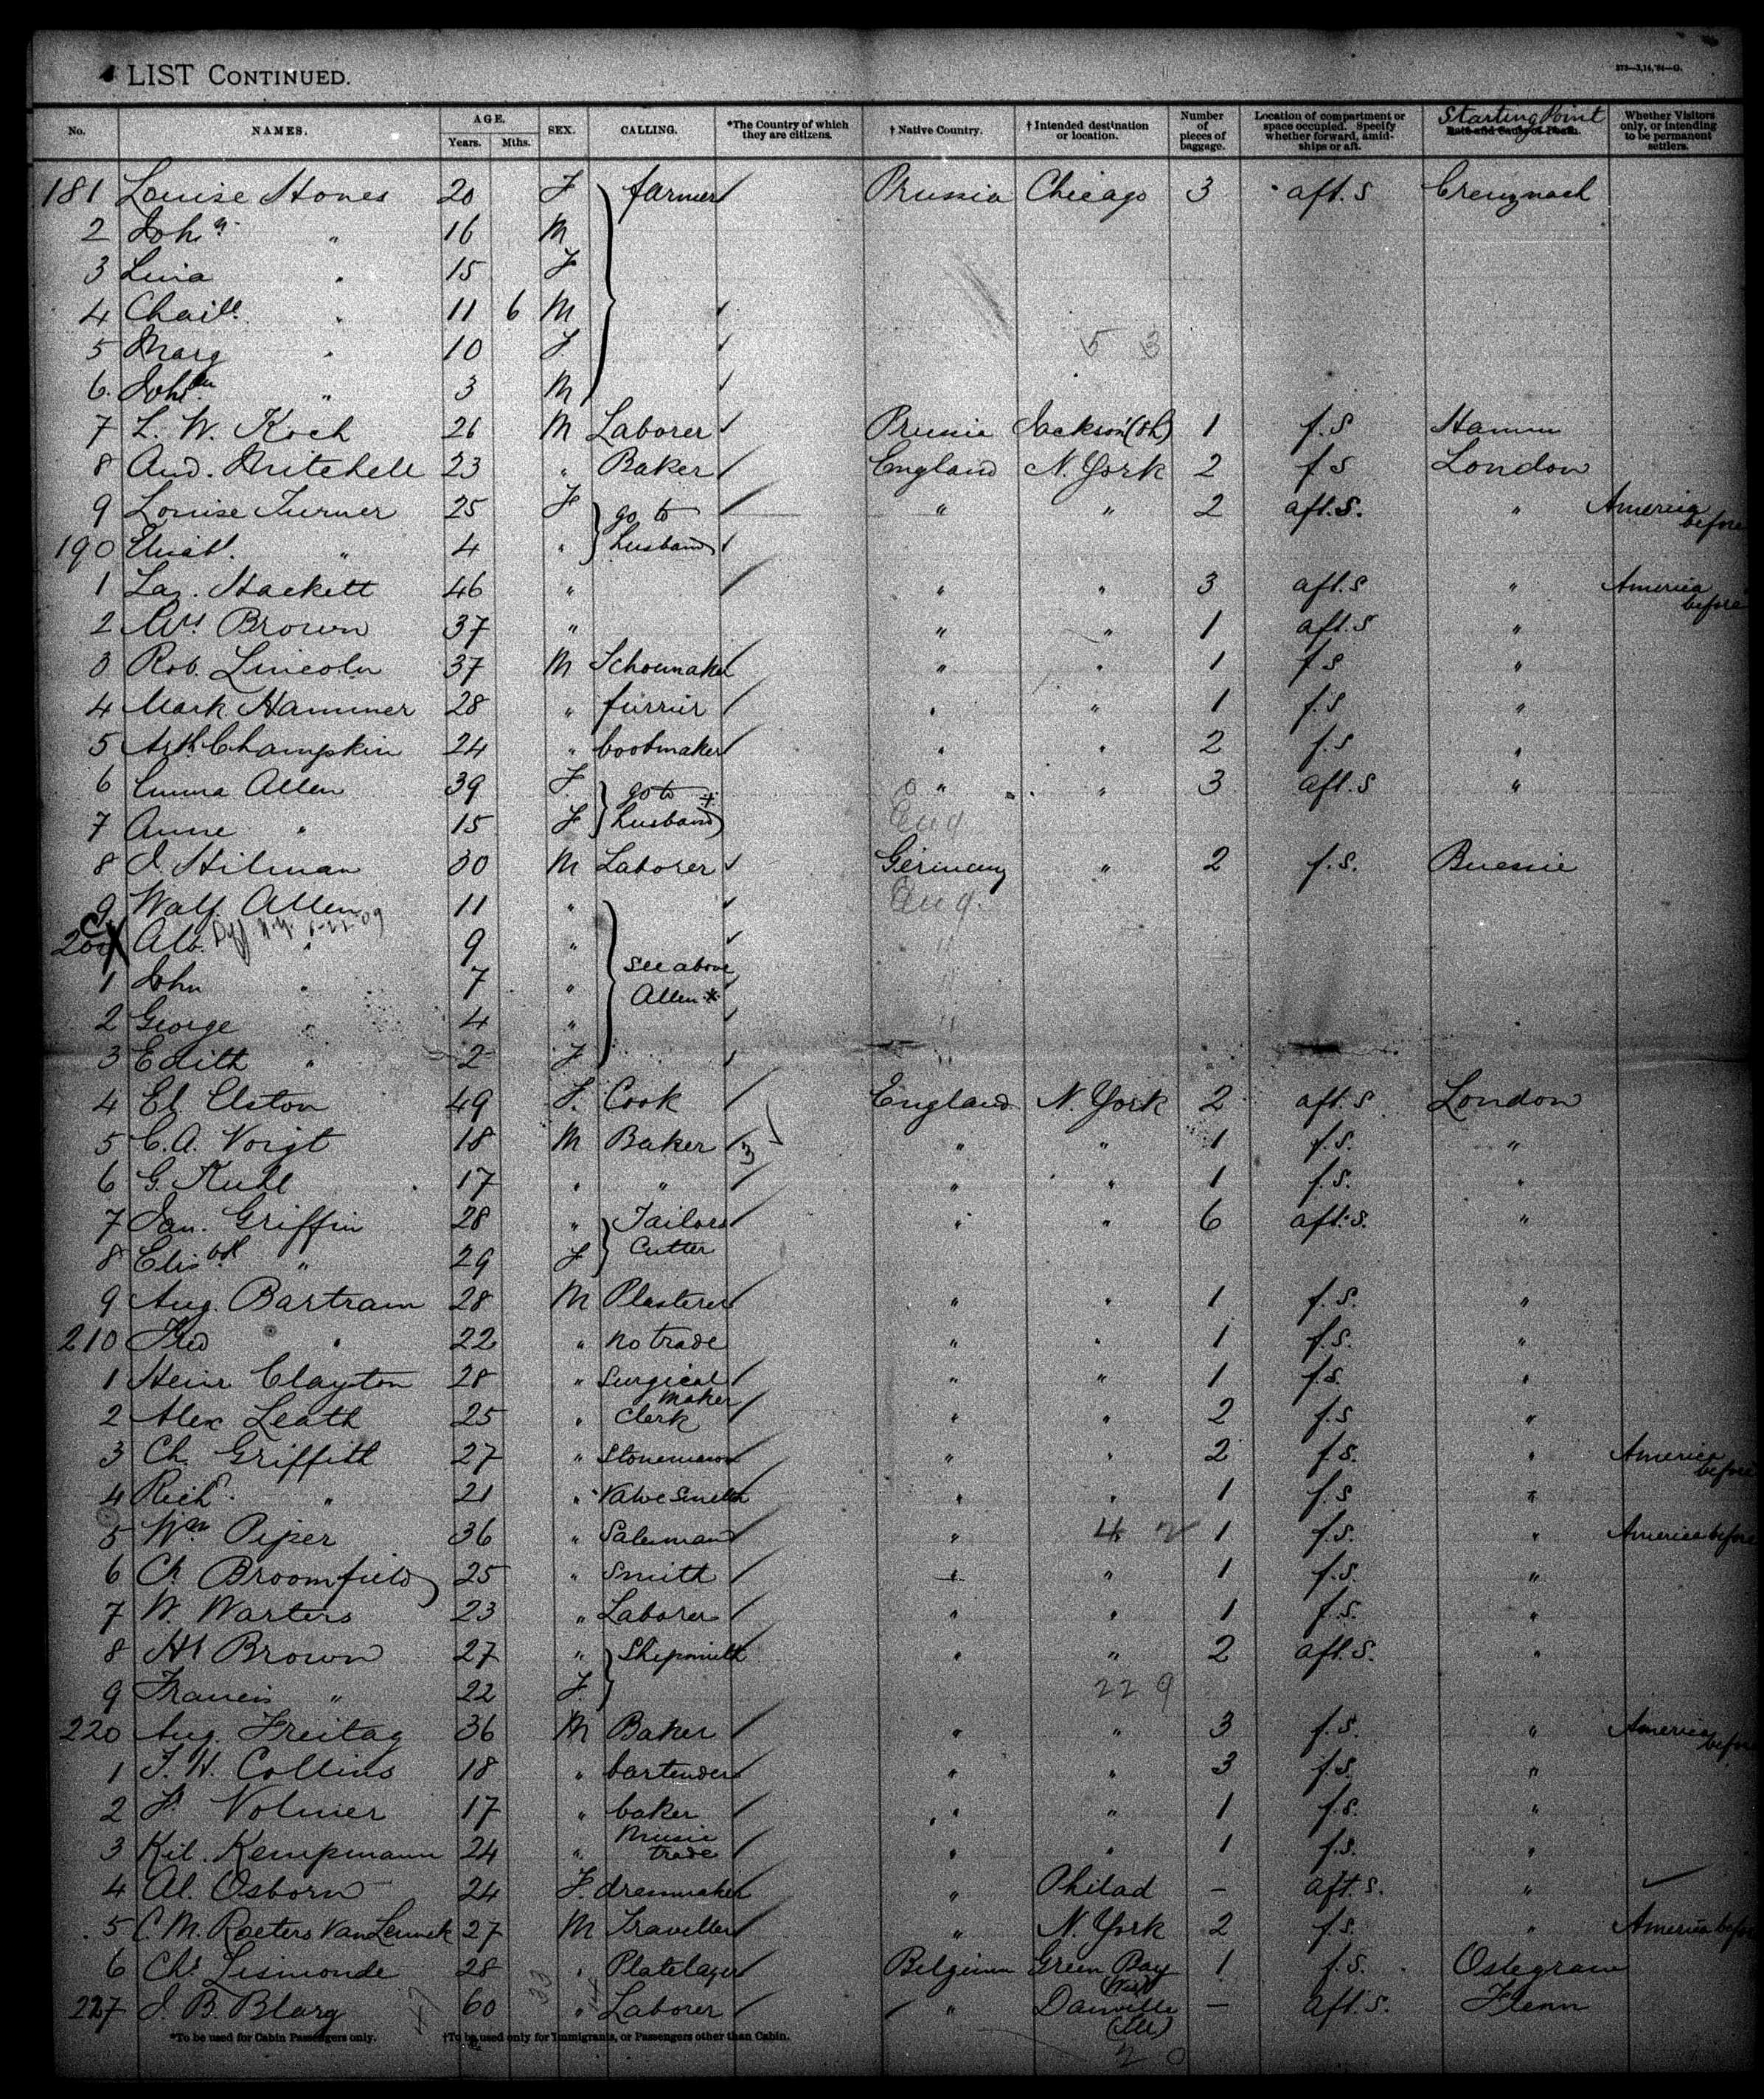 LIST CONTINUED.
No. NAMES. AGE. Years. Mths. SEX. CALLING. *The Country of which they are citizens. † Native Country. † Intended destination or location. Number of pieces of baggage. Location of compartment or space occupied. Specify whether forward, amidships or aft. Starting Point Date and Cause of Death. Whether Visitors only, or intending to be permanent settlers.
181 Louise Stones 20 F farmer Prussia Chicago 3 aft. S Creuznach
2 Joh " 16 M
3 Lina " 15 F
4 " 11 6 M
5 Marg " 10 F
5 3
6. " 3 M
7 L. W. Koch 26 M Laborer Prussia Jackson (Oh) 1 f. S Hamm
8 And. Mitchell 23 " Baker England N. York 2 f S London
9 Louise Turner 25 F go to husband " " 2 aft. S. " America before
190 " 4 "
1 Hackett 46 " " " 3 aft. S " America before
2 Mrs Brown 37 " " " 1 aft. S "
3 Rob. Lincoln 37 M Schoumaker " " 1 f S "
4 Mark Hammer 28 " furrier " " 1 f. S "
5 Arth. Champkin 24 " bootmaker " " 2 f. S "
6 Emma Allen 39 F go to husband + " " 3 aft. S "
7 Anne " 15 F Eng
8 J. Hilman 30 M Laborer Germany " 2 f. S.
9 Walf. Allen 11 " see above Allen * Eng.
200 Alb. " 9 " "
1 John " 7 " "
2 George " 4 " "
3 Edith " 2 F "
4 El. Elston 49 F. Cook England N. York 2 aft. S London
5 C. A. Voigt 18 M Baker 3 " " 1 f. S. "
6 G. Kuhl 17 " " " " 1 f. S. "
7 Jan. Griffin 28 " Tailors Cutter " " 6 aft. S. "
8 Elisbth " 29 F
9 Aug. Bartram 28 M Plasterer " " 1 f. S. "
210 Fred " 22 " no trade " " 1 f. S. "
1 Heinr Clayton 28 " Surgical Maker " " 1 f. S. "
2 Alex Leath 25 " Clerk " " 2 f. S "
3 Ch. Griffith 27 " Stonemason " " 2 f. S. " America before
4 Rich. " 21 " Valve Smith " " 1 f. S "
5 Wm Piper 36 " Salesman " 4 2 1 f. S. " America before
6 Ch. Broomfield 25 " Smith " " 1 f. S. "
7 W. Warters 23 " Laborer " " 1 f. S. "
8 Hy Brown 27 " Shipsmith " " 2 aft. S. "
9 Francis " 22 F. 22 9
220 Aug. Freitag 36 M Baker " " 3 f. S. " America before
1 F. H. Collins 18 " bartender " " 3 f. S. "
2 Volmer 17 " baker " " 1 f. S. "
3 Kil. Kempmann 24 " Music trade " " 1 f. S. "
4 Al. Osborn 24 F. dressmaker " Philad — aft. S. "
5 C. M. Roeters Van Lennek 27 M Traveller " N. York 2 f. S. " America before
6 Chs Lismonde 28 " Platelayer Belgium Green Bay (Wis) 1 f. S.
227 J. B. Blarg 60 " Laborer " Danville (Ills) — aft. S.
*To be used for Cabin Passengers only. †To be used only for Immigrants, or Passengers other than Cabin.
2 0